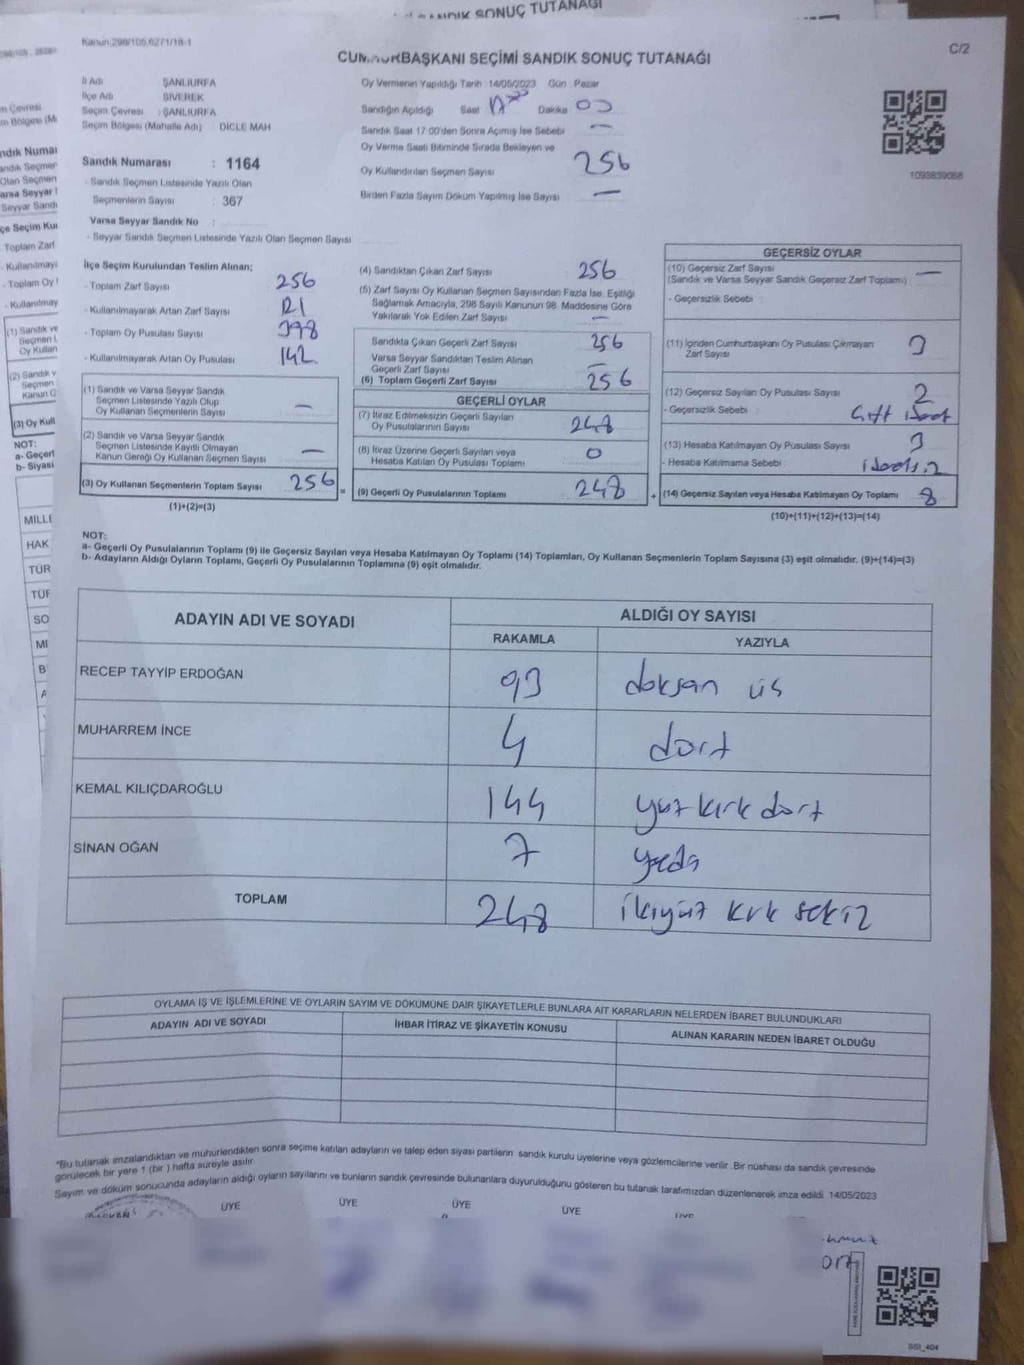 SONUÇ TUTANAĞI
Kanun:298/105,6271/18-1
C/2
CUMHURBAŞKANI SEÇİMİ SANDIK SONUÇ TUTANAĞI
İl Adı ŞANLIURFA
İlçe Adı SİVEREK
Seçim Çevresi : ŞANLIURFA
Seçim Bölgesi (Mahalle Adı) DİCLE MAH
Sandık Numarası : 1164
- Sandık Seçmen Listesinde Yazılı Olan
Seçmenlerin Sayısı : 367
Varsa Seyyar Sandık No :
- Seyyar Sandık Seçmen Listesinde Yazılı Olan Seçmen Sayısı
Oy Vermenin Yapıldığı Tarih :14/05/2023 Gün : Pazar
Sandığın Açıldığı Saat 17 Dakika 00
Sandık Saat 17:00'den Sonra Açılmış İse Sebebi —
Oy Verme Saati Bitiminde Sırada Bekleyen ve
Oy Kullandırılan Seçmen Sayısı 256
Birden Fazla Sayım Döküm Yapılmış İse Sayısı —
1093839068
İlçe Seçim Kurulundan Teslim Alınan;
- Toplam Zarf Sayısı 256
- Kullanılmayarak Artan Zarf Sayısı
- Toplam Oy Pusulası Sayısı 398
- Kullanılmayarak Artan Oy Pusulası 142
(1) Sandık ve Varsa Seyyar Sandık
Seçmen Listesinde Yazılı Olup
Oy Kullanan Seçmenlerin Sayısı —
(2) Sandık ve Varsa Seyyar Sandık
Seçmen Listesinde Kayıtlı Olmayan
Kanun Gereği Oy Kullanan Seçmen Sayısı —
(3) Oy Kullanan Seçmenlerin Toplam Sayısı 256
(1)+(2)=(3)
(4) Sandıktan Çıkan Zarf Sayısı 256
(5) Zarf Sayısı Oy Kullanan Seçmen Sayısından Fazla İse, Eşitliği
Sağlamak Amacıyla, 298 Sayılı Kanunun 98. Maddesine Göre
Yakılarak Yok Edilen Zarf Sayısı —
Sandıkta Çıkan Geçerli Zarf Sayısı 256
Varsa Seyyar Sandıktan Teslim Alınan
Geçerli Zarf Sayısı —
(6) Toplam Geçerli Zarf Sayısı 256
GEÇERLİ OYLAR
(7) İtiraz Edilmeksizin Geçerli Sayılan
Oy Pusulalarının Sayısı 248
(8) İtiraz Üzerine Geçerli Sayılan veya
Hesaba Katılan Oy Pusulası Toplamı 0
= (9) Geçerli Oy Pusulalarının Toplamı 248 +
GEÇERSİZ OYLAR
(10) Geçersiz Zarf Sayısı —
(Sandık ve Varsa Seyyar Sandık Geçersiz Zarf Toplamı)
- Geçersizlik Sebebi :
(11) İçinden Cumhurbaşkanı Oy Pusulası Çıkmayan
Zarf Sayısı 3
(12) Geçersiz Sayılan Oy Pusulası Sayısı 2
- Geçersizlik Sebebi : Çift
(13) Hesaba Katılmayan Oy Pusulası Sayısı 3
- Hesaba Katılmama Sebebi :
(14) Geçersiz Sayılan veya Hesaba Katılmayan Oy Toplamı 8
(10)+(11)+(12)+(13)=(14)
NOT:
a- Geçerli Oy Pusulalarının Toplamı (9) ile Geçersiz Sayılan veya Hesaba Katılmayan Oy Toplamı (14) Toplamları, Oy Kullanan Seçmenlerin Toplam Sayısına (3) eşit olmalıdır. (9)+(14)=(3)
b- Adayların Aldığı Oyların Toplamı, Geçerli Oy Pusulalarının Toplamına (9) eşit olmalıdır.
ADAYIN ADI VE SOYADI ALDIĞI OY SAYISI
RAKAMLA YAZIYLA
RECEP TAYYİP ERDOĞAN 93 doksan üs
MUHARREM İNCE 4 dort
KEMAL KILIÇDAROĞLU 144 yüz kırk dort
SİNAN OĞAN 7 yedi
TOPLAM 248 ikiyüz kırk sekiz
OYLAMA İŞ VE İŞLEMLERİNE VE OYLARIN SAYIM VE DÖKÜMÜNE DAİR ŞİKAYETLERLE BUNLARA AİT KARARLARIN NELERDEN İBARET BULUNDUKLARI
ADAYIN ADI VE SOYADI İHBAR İTİRAZ VE ŞİKAYETİN KONUSU ALINAN KARARIN NEDEN İBARET OLDUĞU
"Bu tutanak imzalandıktan ve mühürlendikten sonra seçime katılan adayların ve talep eden siyasi partilerin sandık kurulu üyelerine veya gözlemcilerine verilir. Bir nüshası da sandık çevresinde
görülecek bir yere 1 (bir ) hafta süreyle asılır.
Sayım ve döküm sonucunda adayların aldığı oyların sayılarını ve bunların sandık çevresinde bulunanlara duyurulduğunu gösteren bu tutanak tarafımızdan düzenlenerek imza edildi. 14/05/2023
ÜYE ÜYE ÜYE ÜYE ÜYE
SSI_404